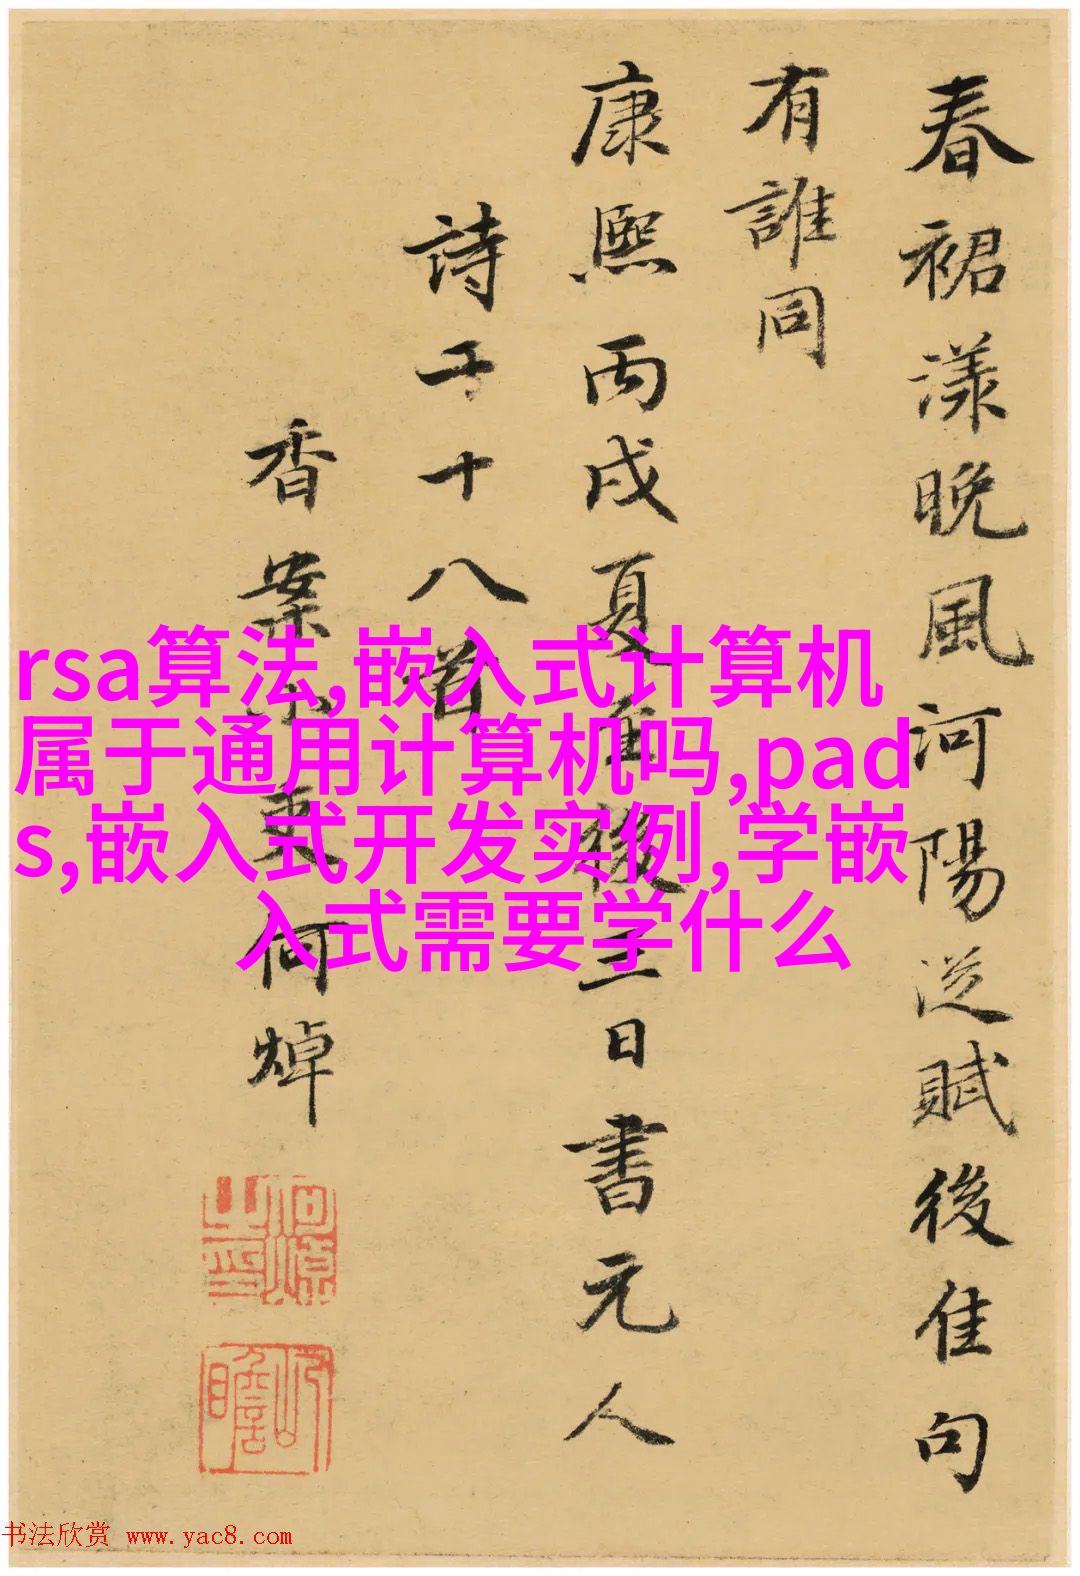 春裙漾晚風河陽從賦後佳句
有誰同
康熙丙戌夏至後三日書元人
詩十八首
香案小吏何焯
何焯之印
屺瞻
rsa算法,嵌入式计算机
属于通用计算机吗,pad
s,嵌入式开发实例,学嵌
入式需要学什么
书法欣赏 www.yac8.com